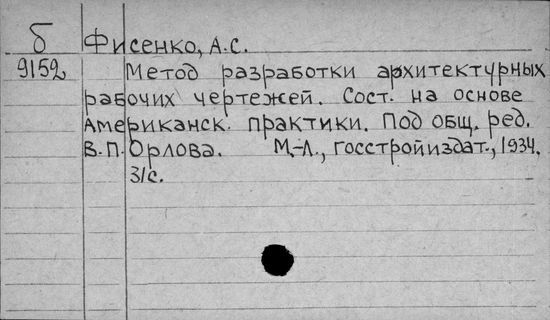 б Фисенко, А.С.
9152 Метод разработки архитектурных
рабочих чертежей. Сост. на основе
Американск. практики. Под общ. ред.
В.П. Орлова. М.-Л., госстройиздат., 1934.
31с.